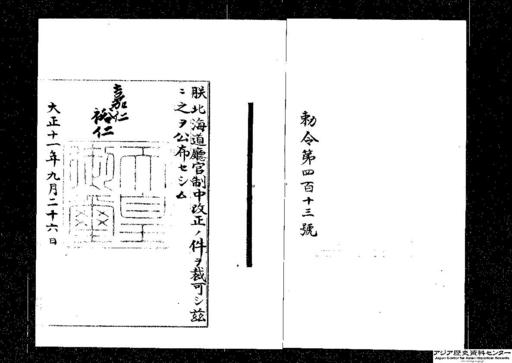 勅令第四百十三號
朕北海道廳官制中改正ノ件ヲ裁可シ茲
ニ之ヲ公布セシム
嘉仁
裕仁
天皇
御璽
大正十一年九月二十六日
アジア歴史資料センター
Japan Center for Asian Historical Records